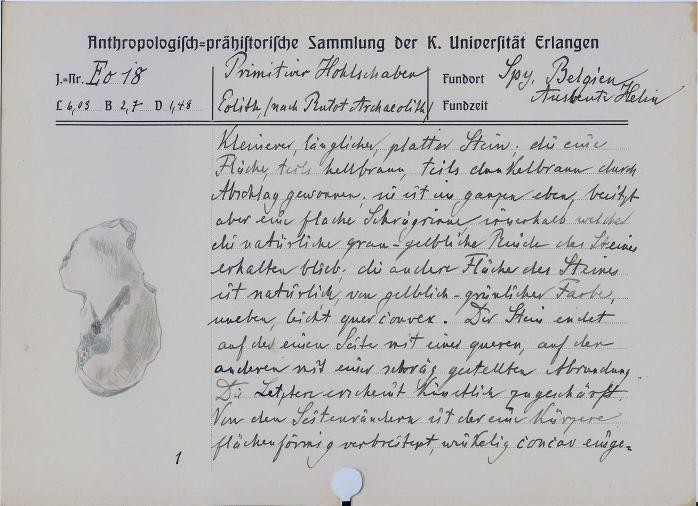 Anthropologisch=prähistorische Sammlung der K. Universität Erlangen
J.=Nr. Eo 18
L 6,03 B 2,7 D 1,48
Primitiver Hohlschaber
Eolith, (nach Rutot Archaeolith)
Fundort Spy, Belgien
Fundzeit Ausbeute Helin
Kleinerer, länglicher, platter Stein; die eine
Fläche, teils hellbraun, teils dunkelbraun durch
Abschlag gewonnen; sie ist im ganzen eben, besitzt
aber eine flache Schrägrinne, innerhalb welcher
die natürliche grau-gelbliche Rinde des Steines
erhalten blieb; die andere Fläche des Steines
ist natürlich, von gelblich-grünlicher Farbe,
uneben, leicht quer convex. Der Stein endet
auf der einen Seite mit einer queren, auf der
anderen mit einer schräg gestellten Abrundung.
Die Letztere erscheint künstlich zugeschärft.
Von den Seitenrändern ist der eine kürzere
flächenförmig verbreitert, winkelig concav einge=
1